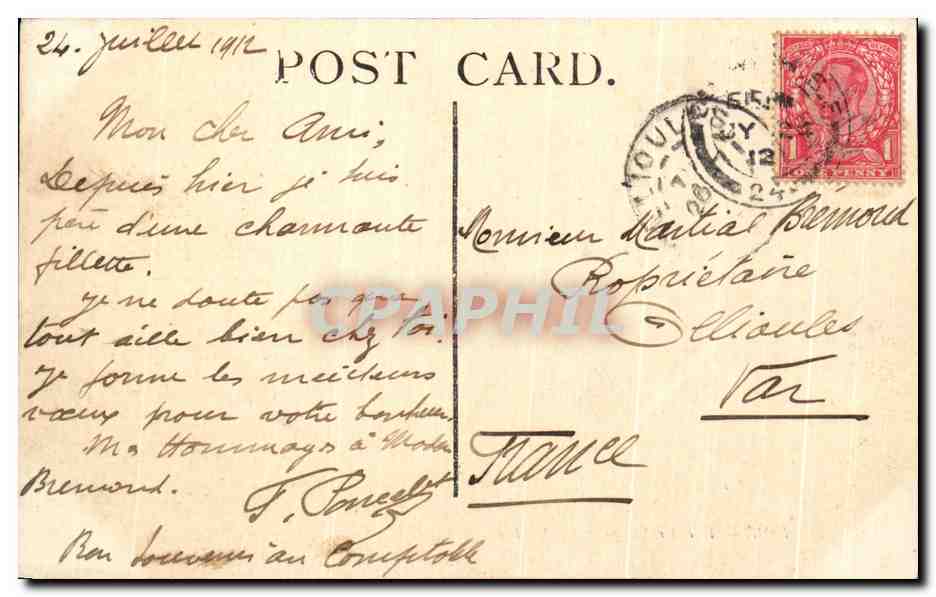 24. Juillet 1912
POST CARD.
Mon cher Ami,
Depuis hier je suis
père d'une charmante
fillette.
Je ne doute pas que
tout aille bien chez toi.
Je forme les meilleurs
vœux pour votre bonheur
Mes Hommages à Madme
Bremond.
F.
Bon Souvenir au Comptable
CPAPHIL
ONE PENNY
1 1
JY
12
24
Monsieur Martial Bremond
Propriétaire
Ollioules
Var
France